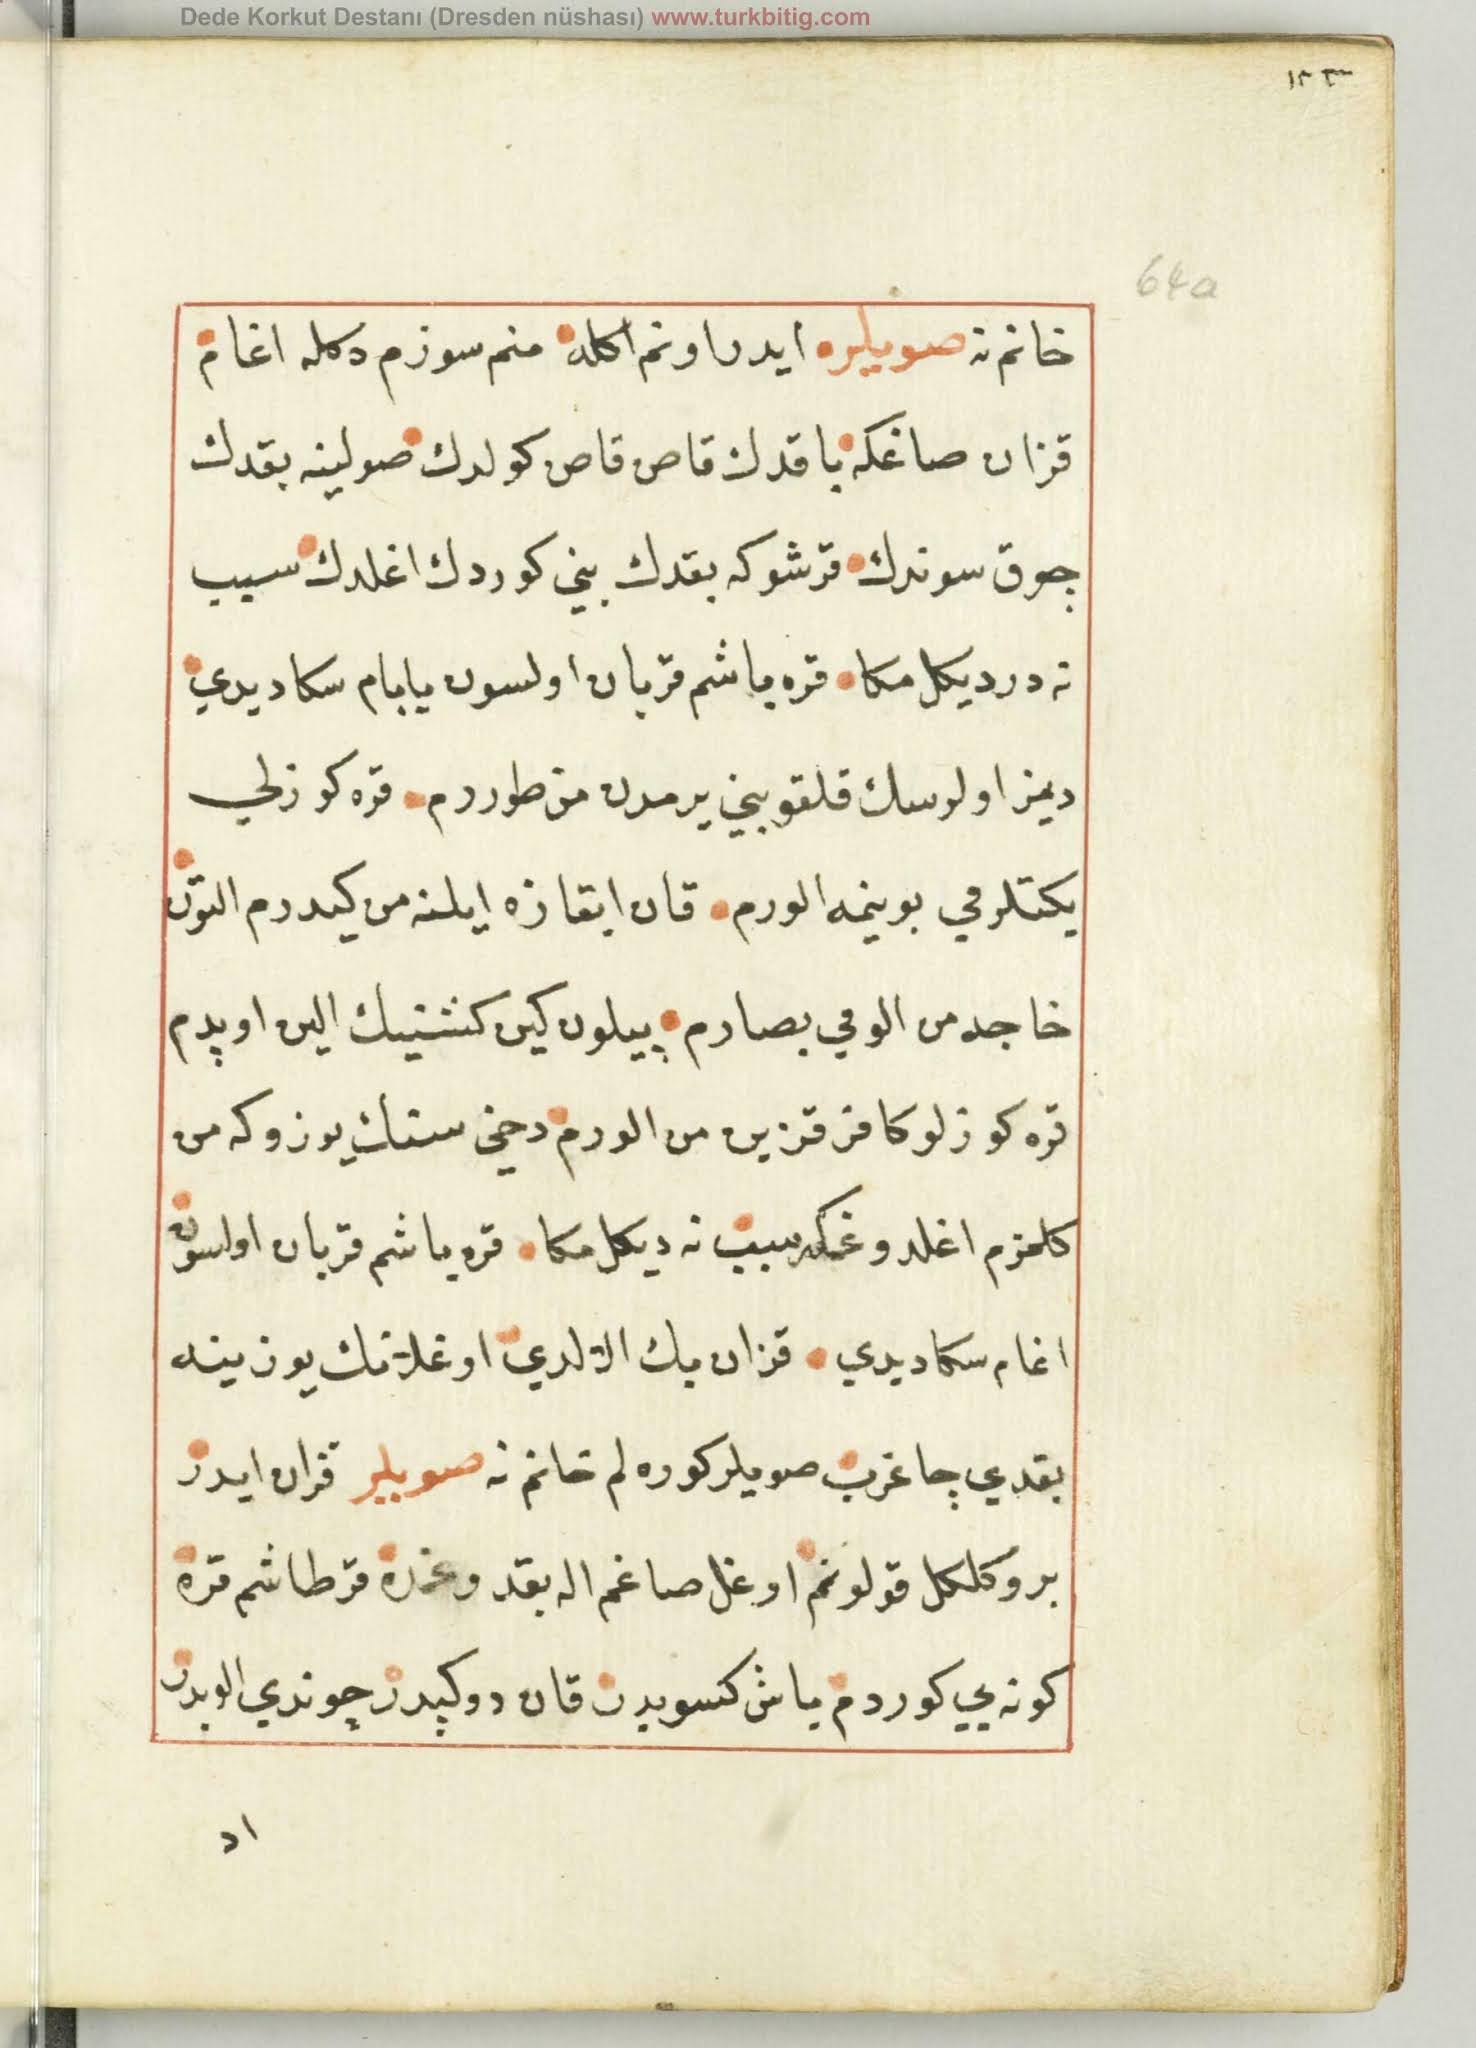 Dede Korkut Destanı (Dresden nüshası) www.turkbitig.com
١٢٣
64a
خانم نه صویلره ایدر اونم اكله منم سوزم دكله اغام
قزان صاغكه باقدك قاص قاص كولدك صولینه بقدك
چوق سوندك قرشوكه بقدك بنی كوردك اغلدك سبب
نه در دیكل مكا قره باشم قربان اولسون یا بابام سكا دیدی
دیمز اولورسك قلقوبنی یرمدن من طوررم قره كوزلی
یكتلرمی بوینمه الورم قان ابقازه ایلنه من كیدرم التون
خاجه من الومی بصارم پیلون كین كشنیك الین اوپدم
قره كوزلو كافر قزین من الورم دخی سنك یوزوكه من
كلمزم اغلدوغكه سبب نه دیكل مكا قره باشم قربان اولسون
اغام سكا دیدی قزان بك الالدی اوغلانك یوزینه
بقدی چاغرب صویلر كوره لم خانم نه صویلر قزان ایدر
برو كلكل قولونم اوغل صاغم اله بقدوغمده قرطاشم قره
كونه یی كوردم باش كسوبدر قان دوكپدر چوندی الوبدر
اد